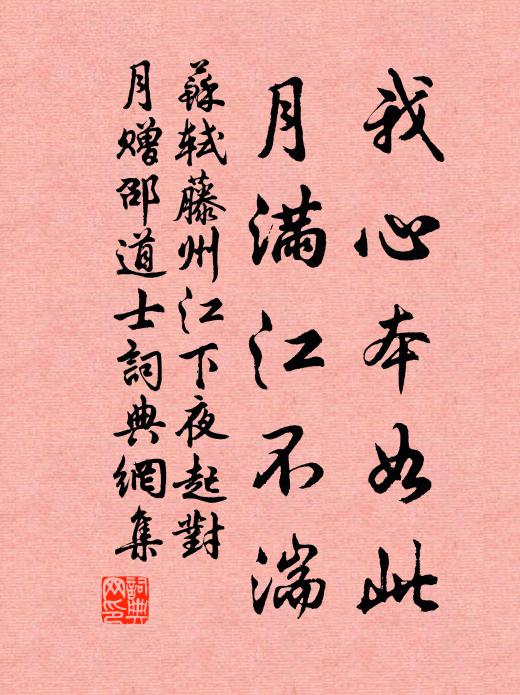 我心本如此
月满江不湍
蘇軾藤州江下夜起對
月贈邵道士詞典網集
詞典網印